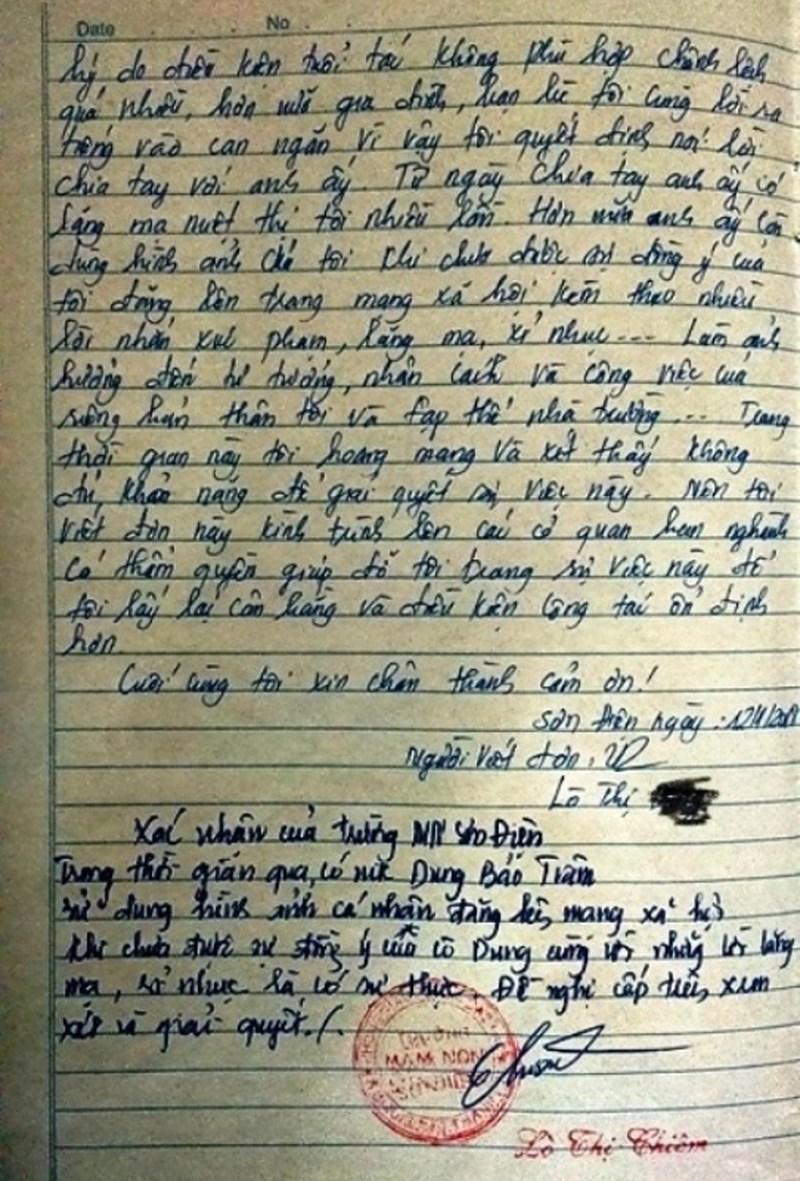 Date No
lý do điều kiện tuổi tác không phù hợp chênh lệch
quá nhiều, hơn nữa gia đình, bạn bè tôi cũng lời ra
tiếng vào can ngăn vì vậy tôi quyết định nói lời
chia tay với anh ấy. Từ ngày chia tay anh ấy có
lăng mạ nuệt thị tôi nhiều lần. Hơn nữa anh ấy còn
dùng hình ảnh của tôi khi chưa được sự đồng ý của
tôi đăng lên trang mạng xã hội kèm theo nhiều
lời nhắn xúc phạm, lăng mạ, xỉ nhục... Làm ảnh
hưởng đến tư tưởng, nhân cách và công việc của
riêng bản thân tôi và tập thể nhà trường... Trong
thời gian này tôi hoang mang và xét thấy không
đủ khả năng để giải quyết sự việc này. Nên tôi
viết đơn này kính trình lên các cơ quan ban nghành
có thẩm quyền giúp đỡ tôi trong sự việc này để
tôi lấy lại cân bằng và điều kiện công tác ổn định
hơn
Cuối cùng tôi xin chân thành cảm ơn!
Sơn Điện ngày
Người viết đơn
Lò Thị
Xác nhận của trường MN Sơn Điện
Trong thời gian qua, có nik Dung Bảo Trâm
sử dụng hình ảnh cá nhân đăng lên mạng xã hội
khi chưa được sự đồng ý của cô Dung cùng với những lời lăng
mạ, sỉ nhục là có sự thực. Đề nghị cấp trên xem
xét và giải quyết./.
TRƯỜNG
MẦM NON
SƠN ĐIỆN
Lò Thị Chiêm